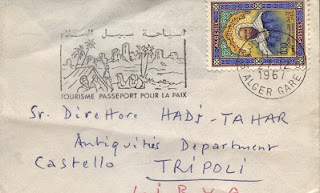 السياحة سبيل السلام
TOURISME PASSEPORT POUR LA PAIX
ALGERIE POSTES
1967
ALGER GARE
Sr. Direttore HADJ-TAHAR
Antiquities Department
Castello TRIPOLI
LIBYA